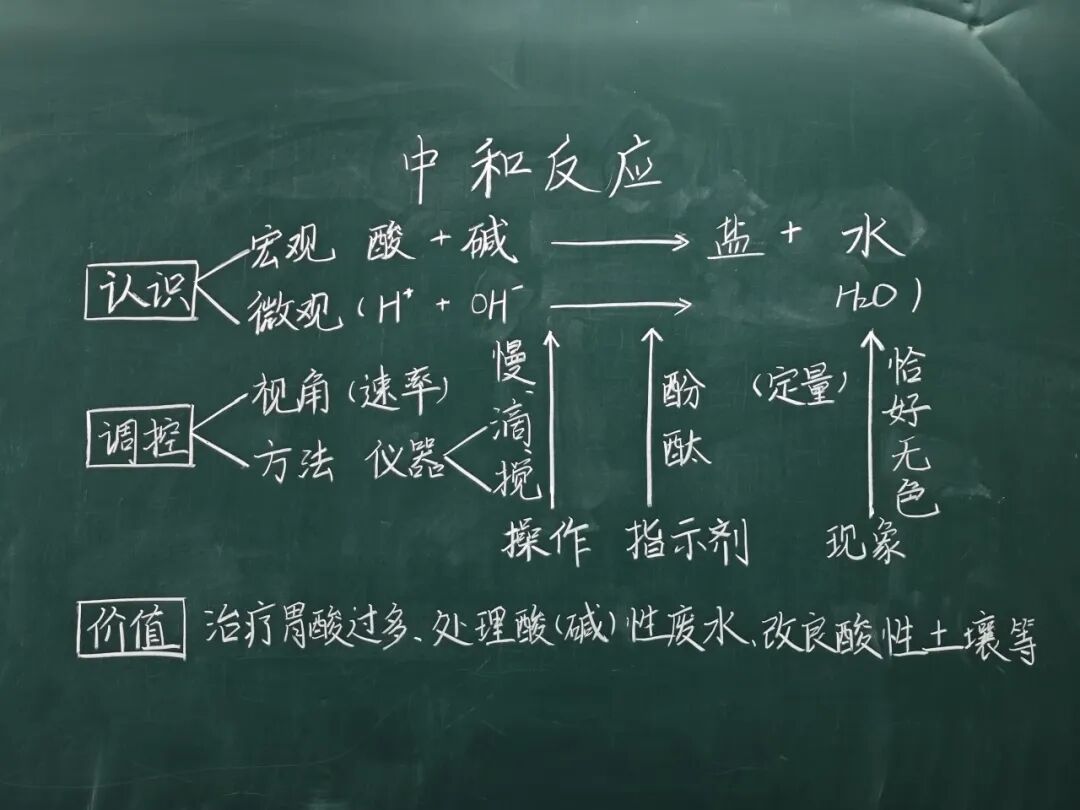 中和反应
宏观 酸 + 碱 → 盐 + 水
认识
微观 (H⁺ + OH⁻ → H₂O)
视角 (速率)
调控
方法 仪器
慢、滴、搅
酚酞
(定量)
恰好无色
操作 指示剂 现象
价值 治疗胃酸过多、处理酸(碱)性废水、改良酸性土壤等